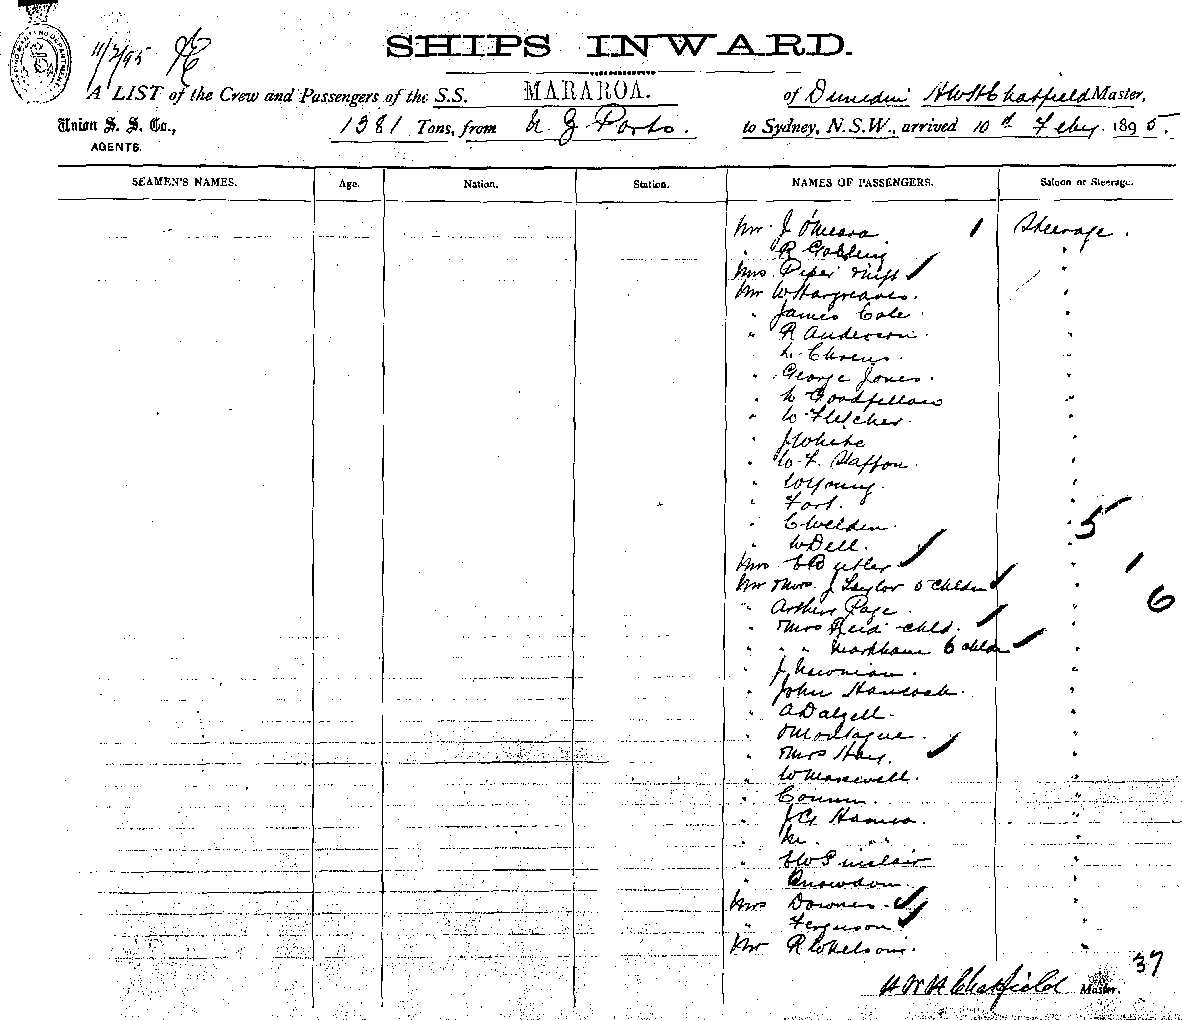 11/2/95
SHIPS INWARD.
A LIST of the Crew and Passengers of the S.S. MARAROA. of Dunedin H W H Chatfield Master,
Union S. S. Co., 1381 Tons, from N. Z Ports. to Sydney, N. S.W., arrived 10th Feby. 1895.
AGENTS.
SEAMEN'S NAMES. Age. Nation. Station. NAMES OF PASSENGERS. Saloon or Steerage.
Mr J O'Meara 1 Steerage.
" R Golding "
Mrs Piper "
Mr W Hargreaves. "
" James Cole. "
" R Anderson. "
L. "
" George Jones. "
" Goodfellow "
" W Fletcher. "
" J White "
" W. F. "
" W Young. "
" Fort. "
" C Weldon. " 5
" W Dell. "
Mrs E Butler " 1
Mr & Mrs. J Taylor 5 Childn " 6
" Arthur Page. "
" Mrs Reid & child. "
" " " Markham 6 childn "
" J Newman. "
" John Hancock. "
" A Dalzell. "
" Montague. "
" Mrs Hay. "
" W Maxwell. "
" "
" J G "
" M. " " "
" W Sinclair "
" Snowdon. "
Mrs Downes "
" Ferguson "
Mr R "
37
H W H Chatfield Master.